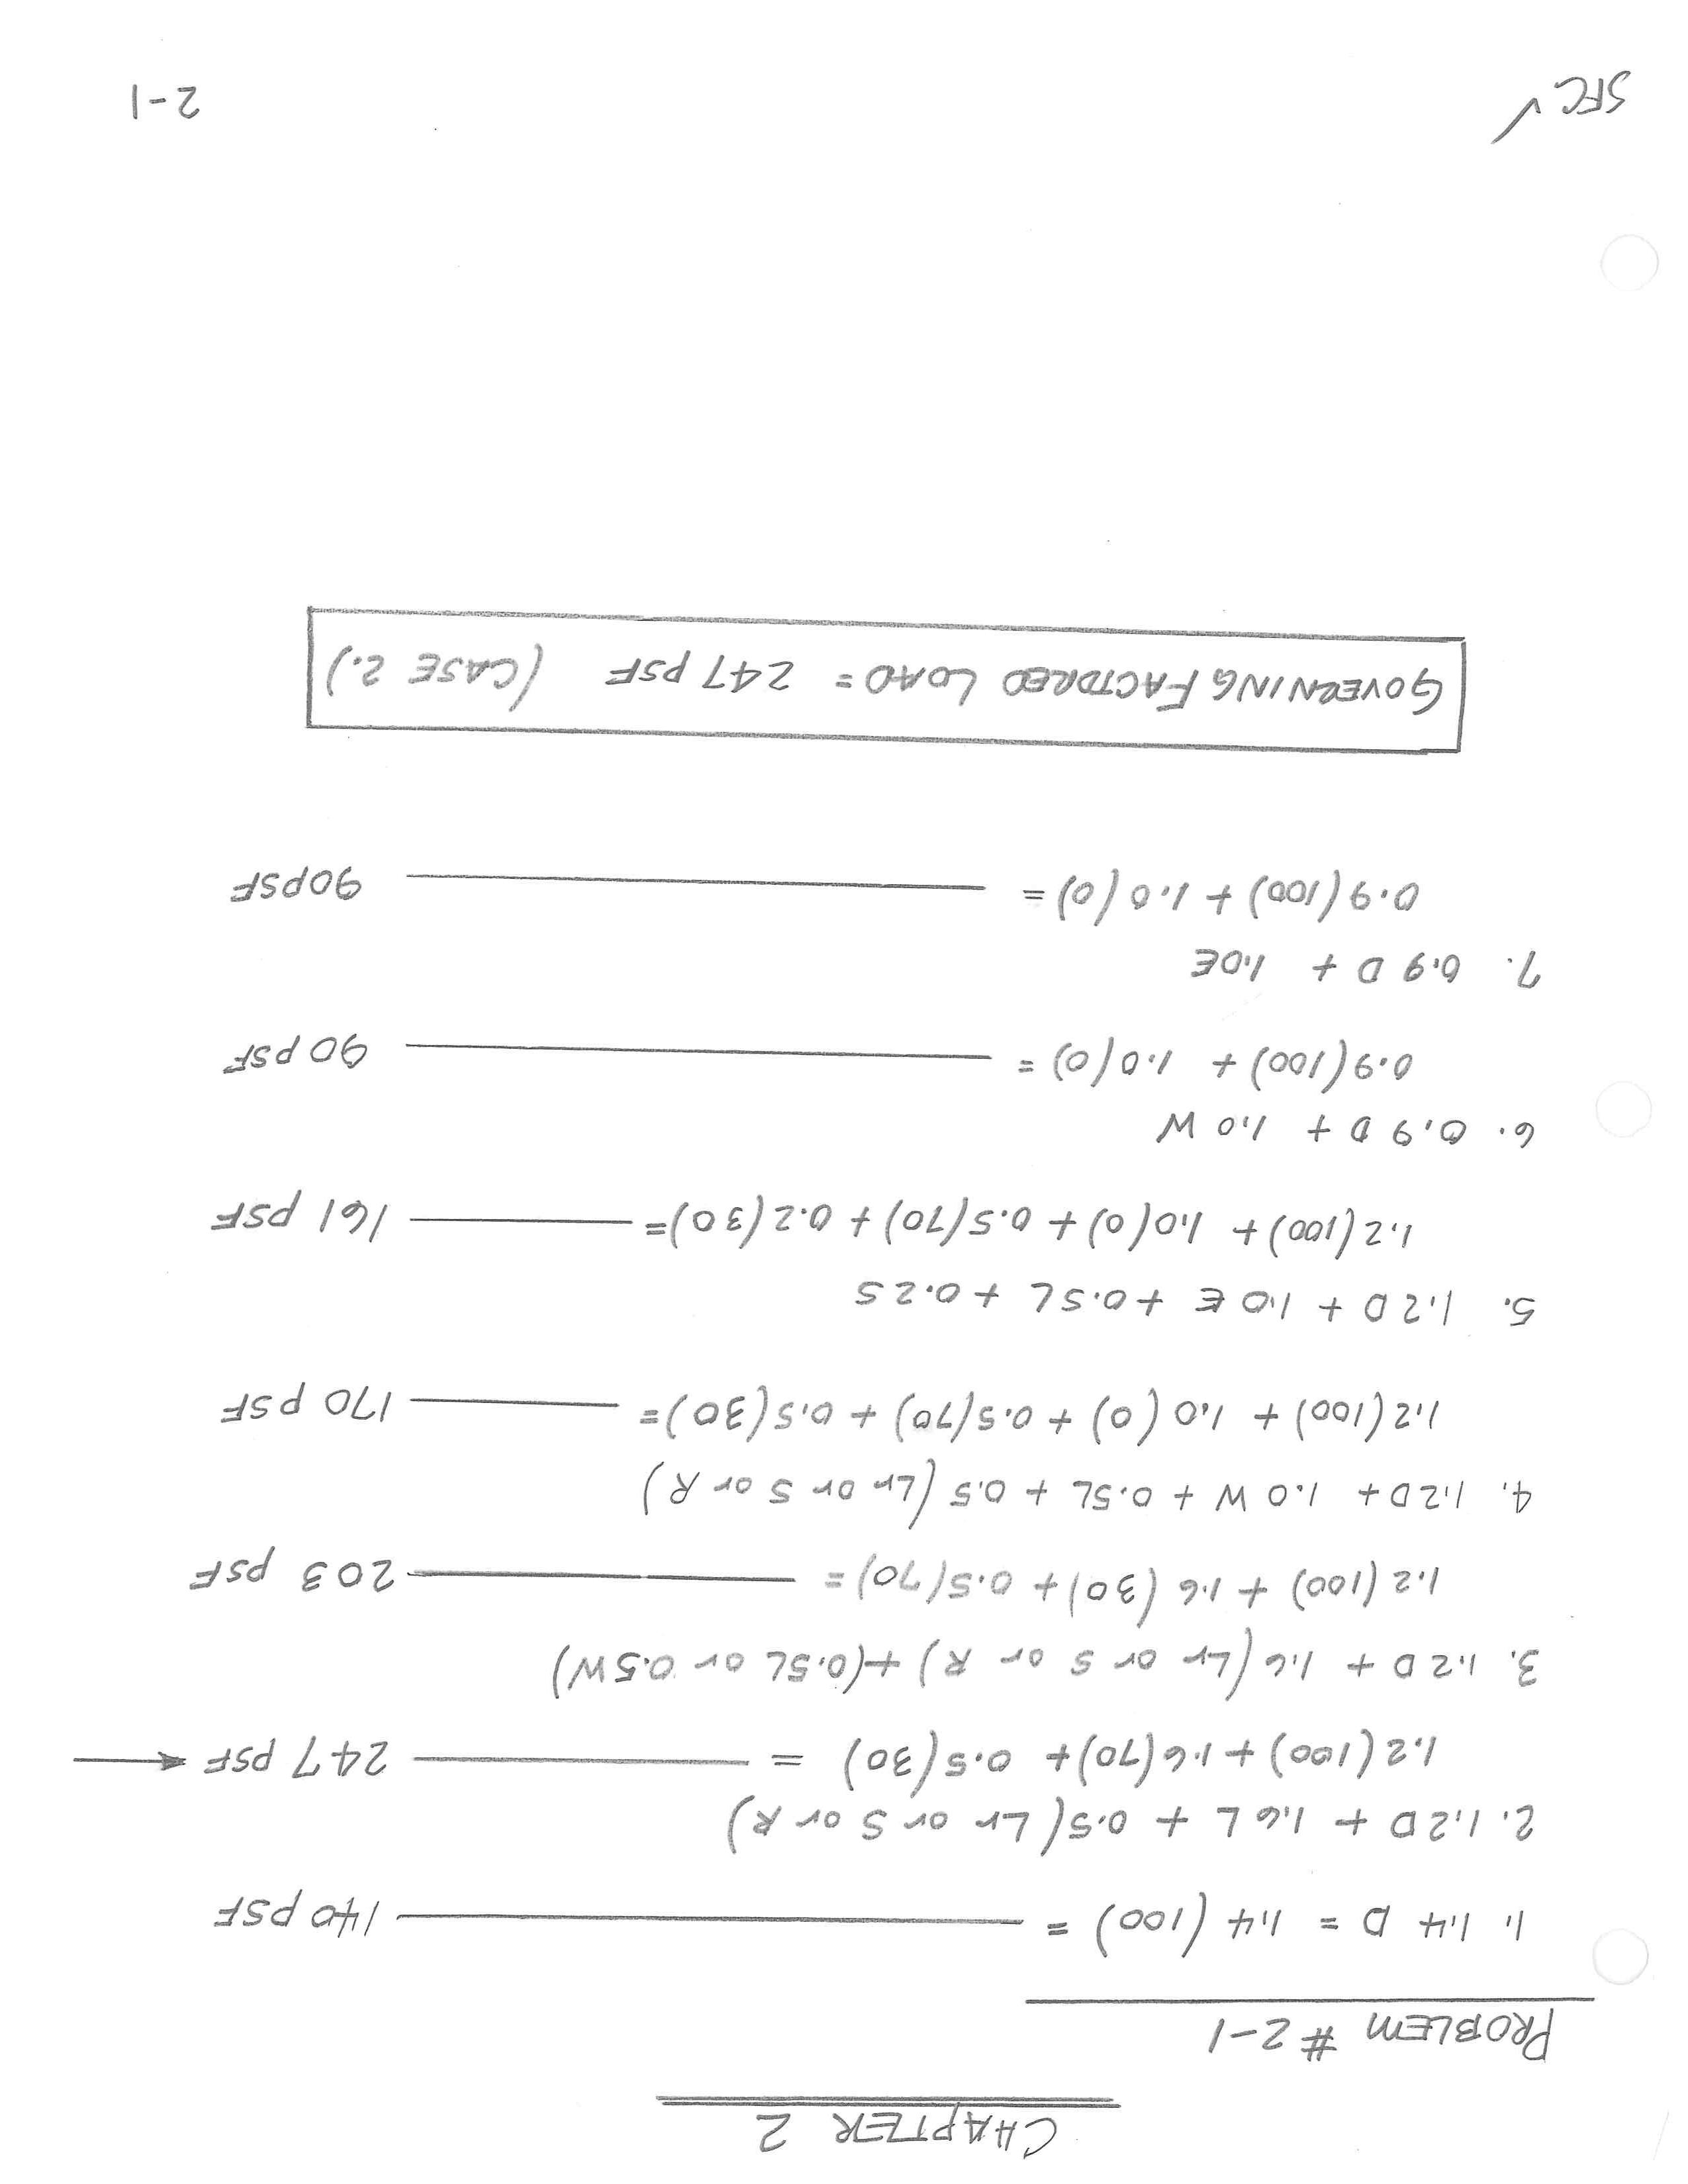 CHAPTER 2
PROBLEM # 2-1
1. 1.4 D = 1.4 (100) = 140 PSF
2. 1.2D + 1.6 L + 0.5 (Lr or S or R)
1.2 (100) + 1.6 (70) + 0.5 (30) = 247 PSF
3. 1.2 D + 1.6 (Lr or S or R) + (0.5L or 0.5W)
1.2 (100) + 1.6 (30) + 0.5 (70) = 203 PSF
4. 1.2D + 1.0 W + 0.5L + 0.5 (Lr or S or R)
1.2 (100) + 1.0 (0) + 0.5 (70) + 0.5 (30) = 170 PSF
5. 1.2 D + 1.0 E + 0.5L + 0.2S
1.2 (100) + 1.0 (0) + 0.5 (70) + 0.2 (30) = 161 PSF
6. 0.9 D + 1.0 W
0.9 (100) + 1.0 (0) = 90 PSF
7. 0.9 D + 1.0E
0.9 (100) + 1.0 (0) = 90 PSF
GOVERNING FACTORED LOAD = 247 PSF (CASE 2.)
SFC ✓ 2-1